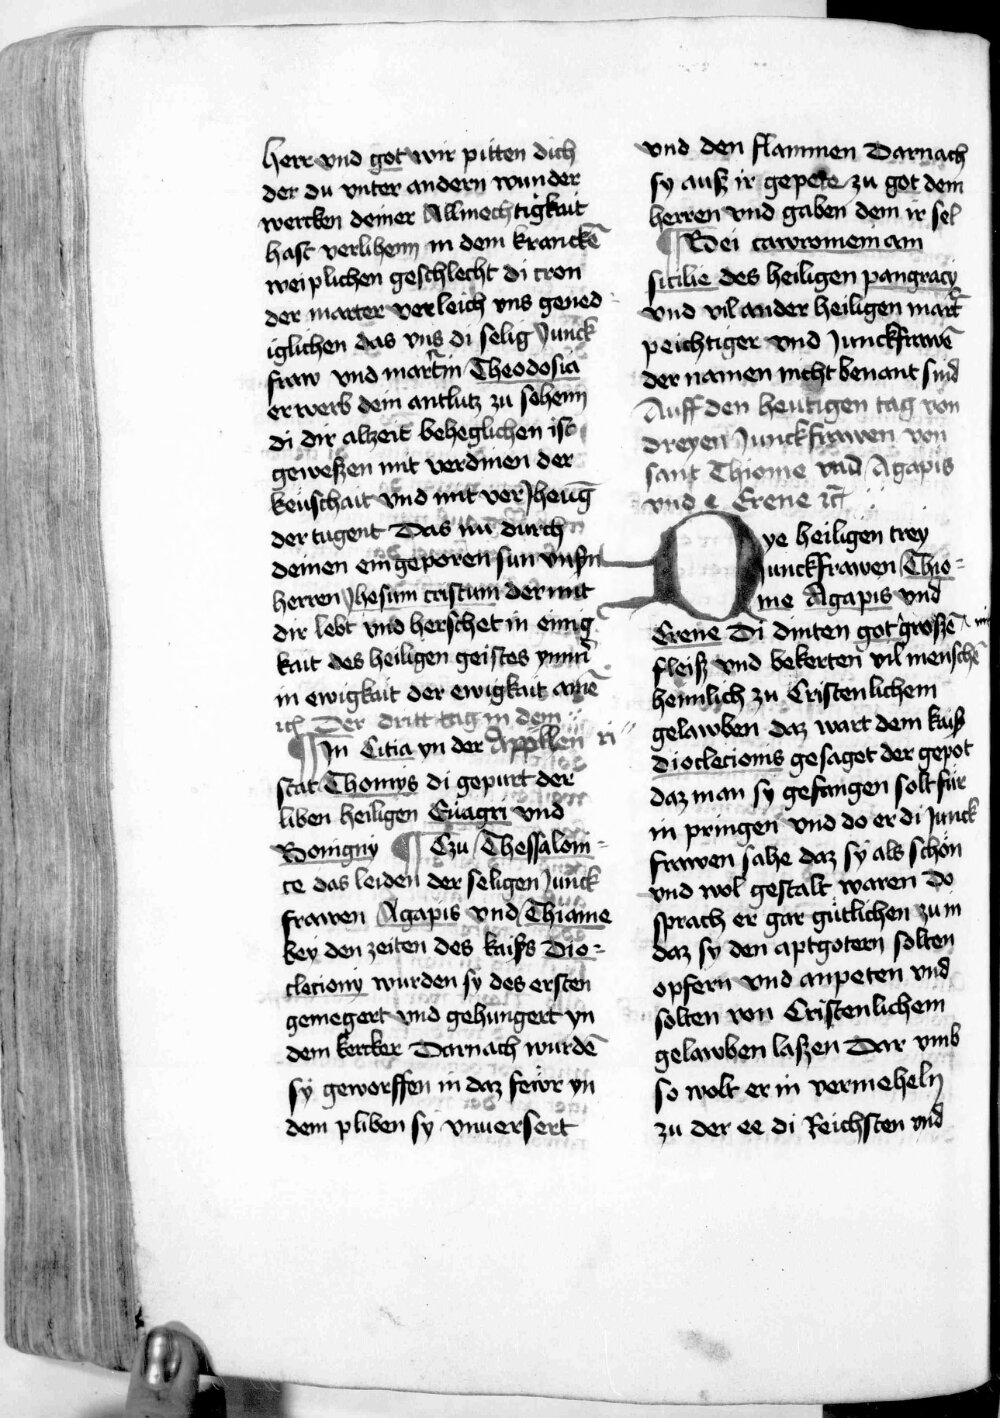 herr vnd got wir pitten dich
der du vnter andern wunder
wercken deiner Allmechtigkait
hast verlihenn in dem kranckē
weiplichen geschlecht di cron
der marter verleich vns gened
iglichen das vns di selig Junck
fraw vnd martrin Theodosia
erwerb dem antlutz zu sehenn
di dir alzeit beheglichen ist
geweßen mit verdinen der
keuschait vnd mit ver Jheūg
der tugent Das nu durch
deinen eingeporen sun vnsrn
herren Jhesum cristum der mit
dir lebt vnd herschet in einig
kait des heiligen geistes ymmr
in ewigkait der ewigkait amē
Der dritt tag in dem
¶ In Citia yn der Appellen ri
stat Thomys di gepurt der
liben heiligen Euagri vnd
Benigny ¶ Czu Thessaloni-
ce das leiden der seligen Junck
frawen Agapis vnd Thiame
bey den zeiten des kaißs Dio-
cleciony wurden sy des ersten
gemegert vnd gehungert yn
dem kercker Darnach wurdē
sy geworffen in daz fewr yn
dem pliben sy vnuersert
vnd den flammen Darnach
sy auß ir gepete zu got dem
herren vnd gaben dem ir sel
¶ Bei tawromeniam
sicilie des heiligen pangracy
vnd vil ander heiligen mart
peichtiger vnd Junckfrawē
der namen nicht benant sind
Auff den heutigen tag von
dreyen Junckfrawen von
sant Thiome vnd Agapis
vnd Erene ꝛc
Dye heiligen trey
Junckfrawen Thio-
me Agapis vnd
Erene Di dinten got großē mit
fleiß vnd bekerten vil menschē
heimlich zu Cristenlichem
gelawben daz wart dem kaiß
Dioclecionis gesaget der gepot
daz man sy gefangen solt für
in pringen vnd do er di Junck
frawen sahe daz sy als schön
vnd wol gestalt waren Do
sprach er gar gütlichen zu in
daz sy den aptgotern solten
opfern vnd anpeten vnd
solten von Cristenlichem
gelawben laßen Dar vmb
so wolt er in vermeheln
zu der ee di Reichsten vnd